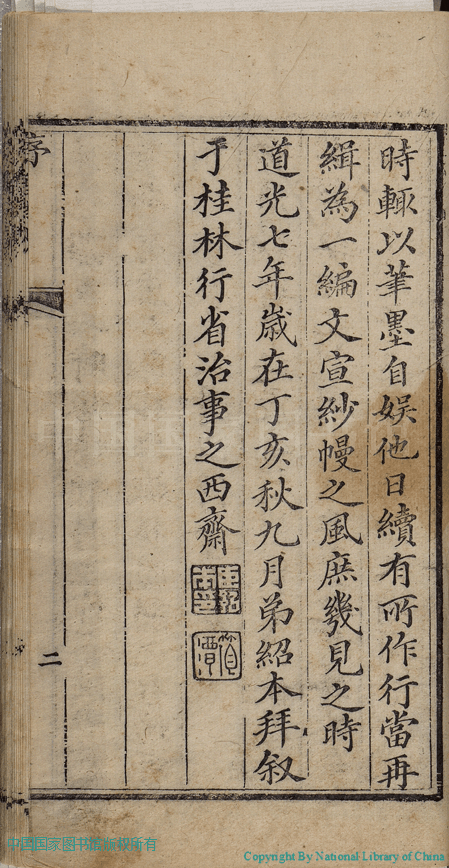 時輙以筆墨自娱他日續有所作行當再
緝為一編文宣紗幔之風庶幾見之時
道光七年歲在丁亥秋九月弟紹本拜叙
于桂林行省治事之西齋
序
二
中国国家图书馆版权所有
Copyright By National Library of China